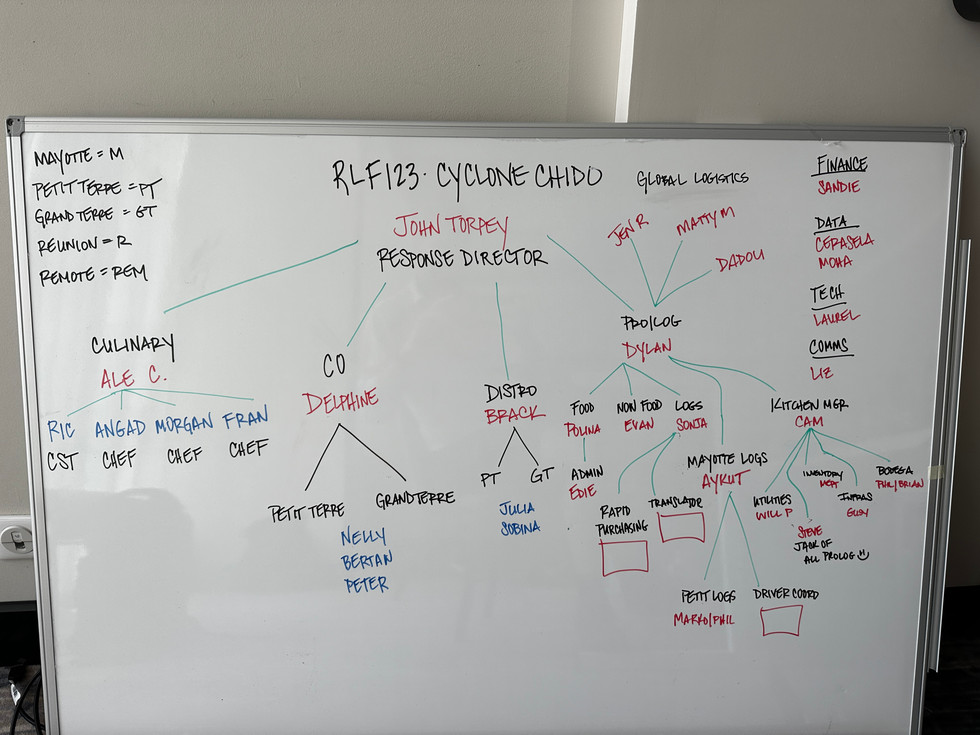 MAYOTTE = M
PETIT TERRE = PT
GRAND TERRE = GT
REUNION = R
REMOTE = REM
RLF123 · CYCLONE CHIDO
JOHN TORPEY
RESPONSE DIRECTOR
GLOBAL LOGISTICS
JEN R
MATTY M
DADOU
FINANCE
SANDIE
DATA
CERASELA
MOHA
TECH
LAUREL
COMMS
LIZ
CULINARY
ALE C.
RIC
CST
ANGAD
CHEF
MORGAN
CHEF
FRAN
CHEF
CO
DELPHINE
PETIT TERRE
GRANDTERRE
NELLY
BERTAN
PETER
DISTRO
BRACK
PT
GT
JULIA
SOBINA
PRO/LOG
DYLAN
FOOD
POLINA
ADMIN
EDIE
NON FOOD
EVAN
LOGS
SONJA
RAPID
PURCHASING
TRANSLATOR
MAYOTTE LOGS
AYKUT
PETIT LOGS
MARKO/PHIL
DRIVER COORD
KITCHEN MGR
CAM
UTILITIES
WILL P
STEVE
JACK OF
ALL PROLOG
INVENTORY
INFRAS
BODEGA
PHIL/BRIAN